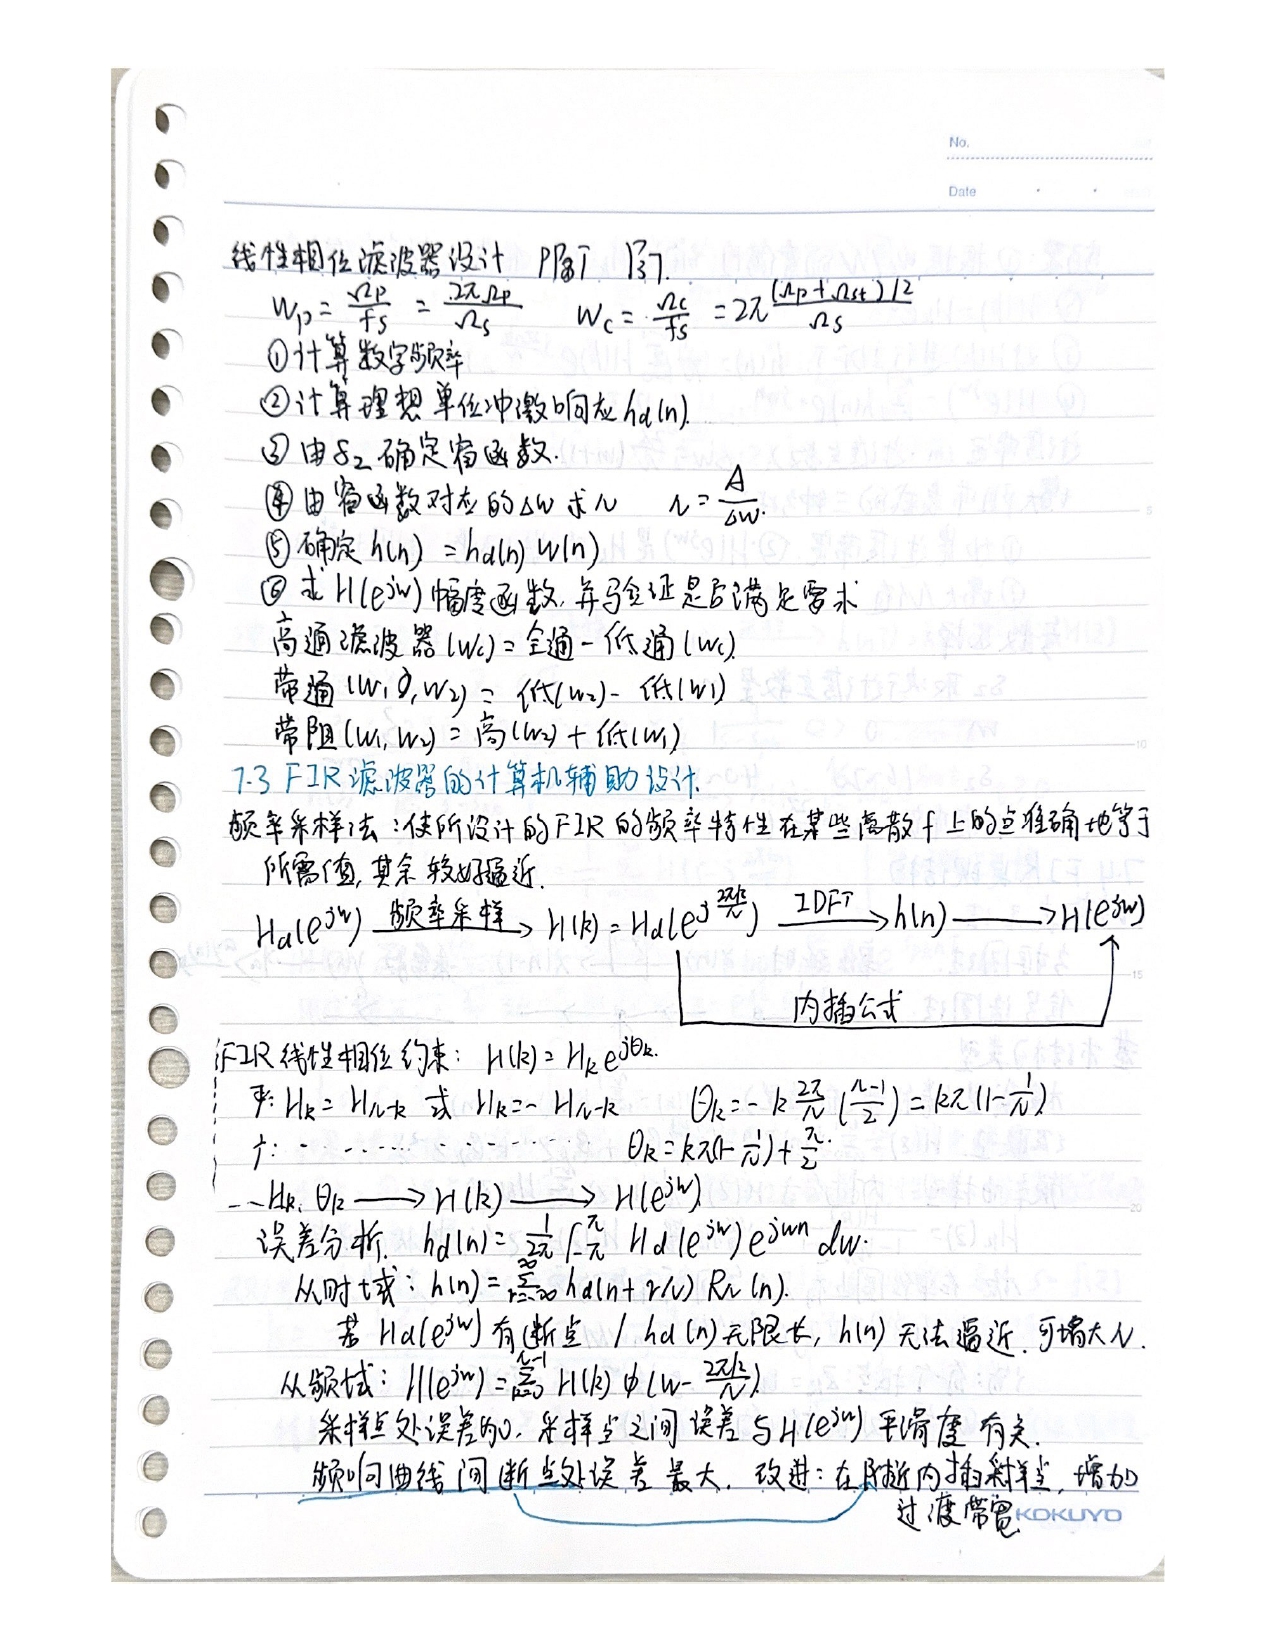 No.
Date
线性相位滤波器设计 PPT 137
Wp = Ωp/fs = 2πΩp/Ωs Wc = Ωc/fs = 2π (Ωp+Ωst)/2 / Ωs
①计算数字频率
②计算理想单位冲激响应hd(n).
③由δ2确定窗函数.
④由窗函数对应的Δw求N N = A/Δw.
⑤确定h(n) = hd(n) w(n)
⑥求H(e^jw)幅度函数,并验证是否满足要求
高通滤波器(wc) = 全通 - 低通(wc).
带通(w1, w2) = 低(w2) - 低(w1)
带阻(w1, w2) = 高(w2) + 低(w1)
7.3 FIR滤波器的计算机辅助设计.
频率采样法:使所设计的FIR的频率特性在某些离散f上的点准确地等于
所需值,其余较好逼近.
Hd(e^jw) 频率采样 → H(k) = Hd(e^j2πk/N) IDFT → h(n) → H(e^jw)
内插公式
FIR线性相位约束: H(k) = Hk e^jθk.
Hk = HN-k 或 Hk = - HN-k θk = -k 2π/N (N-1/2) = kπ(1-1/N)
θk = kπ(1-1/N) + π/2.
Hk, θk → H(k) → H(e^jw)
误差分析. hd(n) = 1/2π ∫-π^π Hd(e^jw) e^jwn dw.
从时域: h(n) = Σ r=-∞^∞ hd(n+rN) RN(n).
若Hd(e^jw)有断点 / hd(n)无限长, h(n)无法逼近. 可增大N.
从频域: H(e^jw) = Σ k=0^N-1 H(k) φ(w - 2πk/N)
采样点处误差为0, 采样点之间误差与H(e^jw)平滑度有关.
频响曲线间断点处误差最大. 改进: 在附近内插采样点, 增加
过渡带宽
KOKUYO